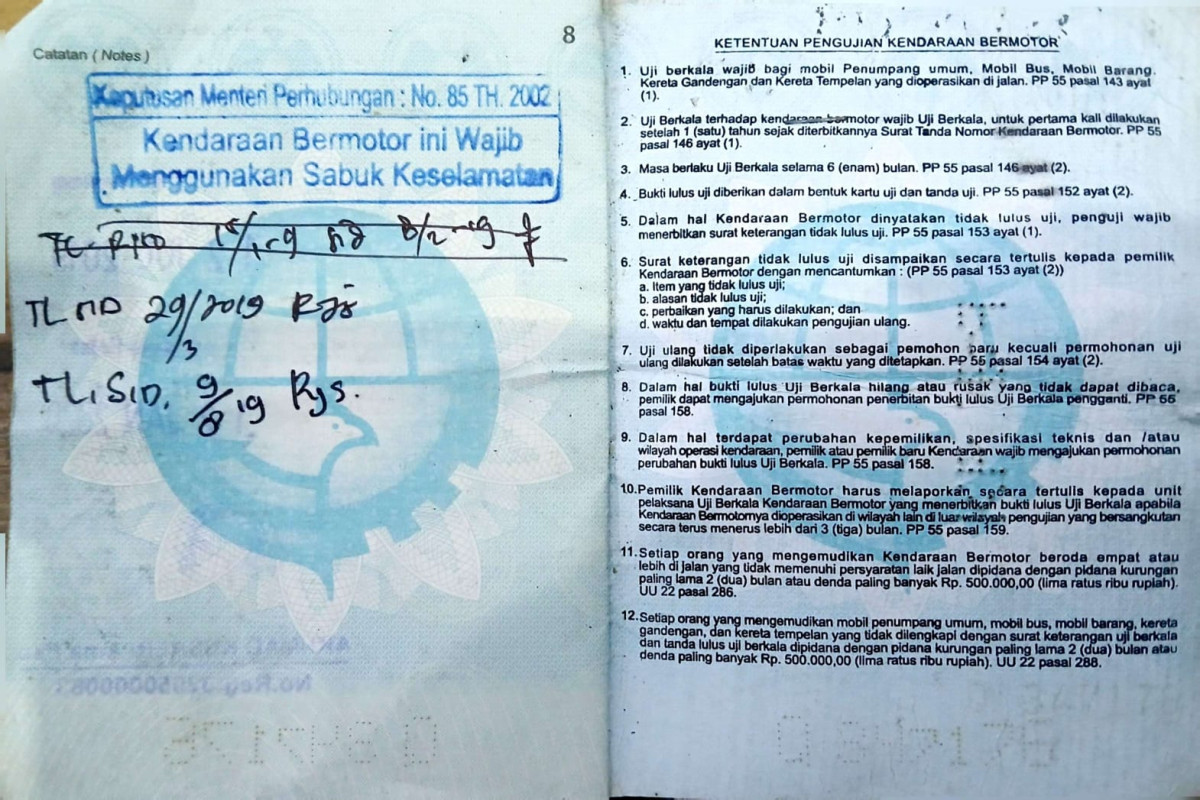 8
Catatan ( Notes )
Keputusan Menteri Perhubungan : No. 85 TH. 2002
Kendaraan Bermotor ini Wajib
Menggunakan Sabuk Keselamatan
TL MD 29/3/2019 Rys
TL, SID, 9/8 19 Rys.
KETENTUAN PENGUJIAN KENDARAAN BERMOTOR
1. Uji berkala wajib bagi mobil Penumpang umum, Mobil Bus, Mobil Barang.
Kereta Gandengan dan Kereta Tempelan yang dioperasikan di jalan. PP 55 pasal 143 ayat
(1).
2. Uji Berkala terhadap kendaraan bermotor wajib Uji Berkala, untuk pertama kali dilakukan
setelah 1 (satu) tahun sejak diterbitkannya Surat Tanda Nomor Kendaraan Bermotor. PP 55
pasal 146 ayat (1).
3. Masa berlaku Uji Berkala selama 6 (enam) bulan. PP 55 pasal 146 ayat (2).
4. Bukti lulus uji diberikan dalam bentuk kartu uji dan tanda uji. PP 55 pasal 152 ayat (2).
5. Dalam hal Kendaraan Bermotor dinyatakan tidak lulus uji, penguji wajib
menerbitkan surat keterangan tidak lulus uji. PP 55 pasal 153 ayat (1).
6. Surat keterangan tidak lulus uji disampaikan secara tertulis kepada pemilik
Kendaraan Bermotor dengan mencantumkan : (PP 55 pasal 153 ayat (2))
a. Item yang tidak lulus uji;
b. alasan tidak lulus uji;
c. perbaikan yang harus dilakukan; dan
d. waktu dan tempat dilakukan pengujian ulang.
7. Uji ulang tidak diperlakukan sebagai pemohon baru kecuali permohonan uji
ulang dilakukan setelah batas waktu yang ditetapkan. PP 55 pasal 154 ayat (2).
8. Dalam hal bukti lulus Uji Berkala hilang atau rusak yang tidak dapat dibaca,
pemilik dapat mengajukan permohonan penerbitan bukti lulus Uji Berkala pengganti. PP 55
pasal 158.
9. Dalam hal terdapat perubahan kepemilikan, spesifikasi teknis dan /atau
wilayah operasi kendaraan, pemilik atau pemilik baru Kendaraan wajib mengajukan permohonan
perubahan bukti lulus Uji Berkala. PP 55 pasal 158.
10.Pemilik Kendaraan Bermotor harus melaporkan secara tertulis kepada unit
pelaksana Uji Berkala Kendaraan Bermotor yang menerbitkan bukti lulus Uji Berkala apabila
Kendaraan Bermotornya dioperasikan di wilayah lain di luar wilayah pengujian yang bersangkutan
secara terus menerus lebih dari 3 (tiga) bulan. PP 55 pasal 159.
11.Setiap orang yang mengemudikan Kendaraan Bermotor beroda empat atau
lebih di jalan yang tidak memenuhi persyaratan laik jalan dipidana dengan pidana kurungan
paling lama 2 (dua) bulan atau denda paling banyak Rp. 500.000,00 (lima ratus ribu rupiah).
UU 22 pasal 286.
12.Setiap orang yang mengemudikan mobil penumpang umum, mobil bus, mobil barang, kereta
gandengan, dan kereta tempelan yang tidak dilengkapi dengan surat keterangan uji berkala
dan tanda lulus uji berkala dipidana dengan pidana kurungan paling lama 2 (dua) bulan atau
denda paling banyak Rp. 500.000,00 (lima ratus ribu rupiah). UU 22 pasal 288.